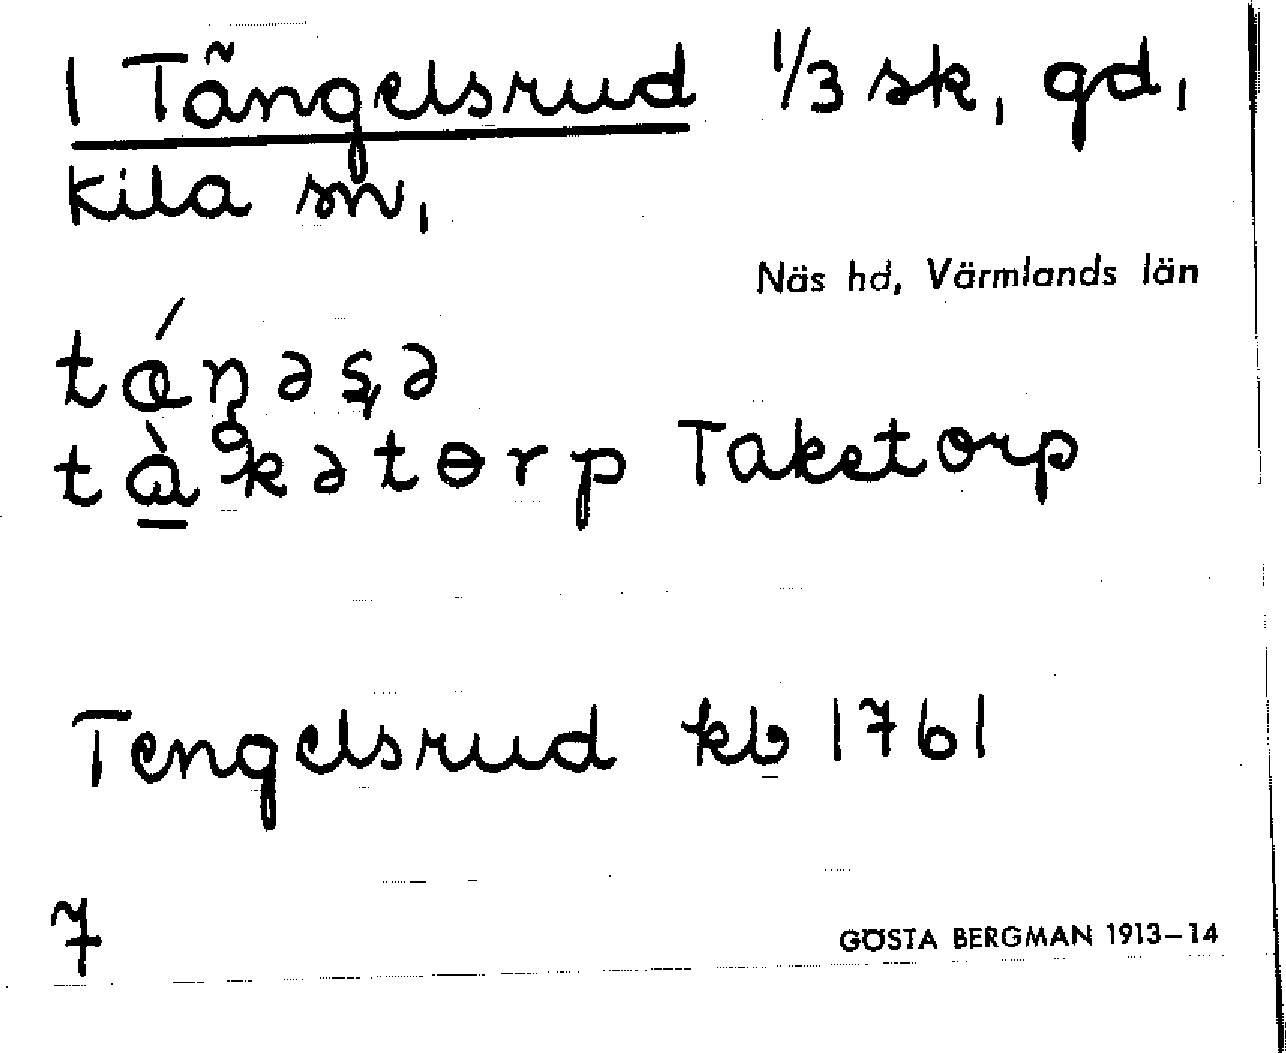 1 Tängelsrud 1/3 sk, gd,
Kila sn,
Näs hd, Värmlands län
tàkətɵrp Taketorp
Tengelsrud kb 1761
7
GÖSTA BERGMAN 1913–14